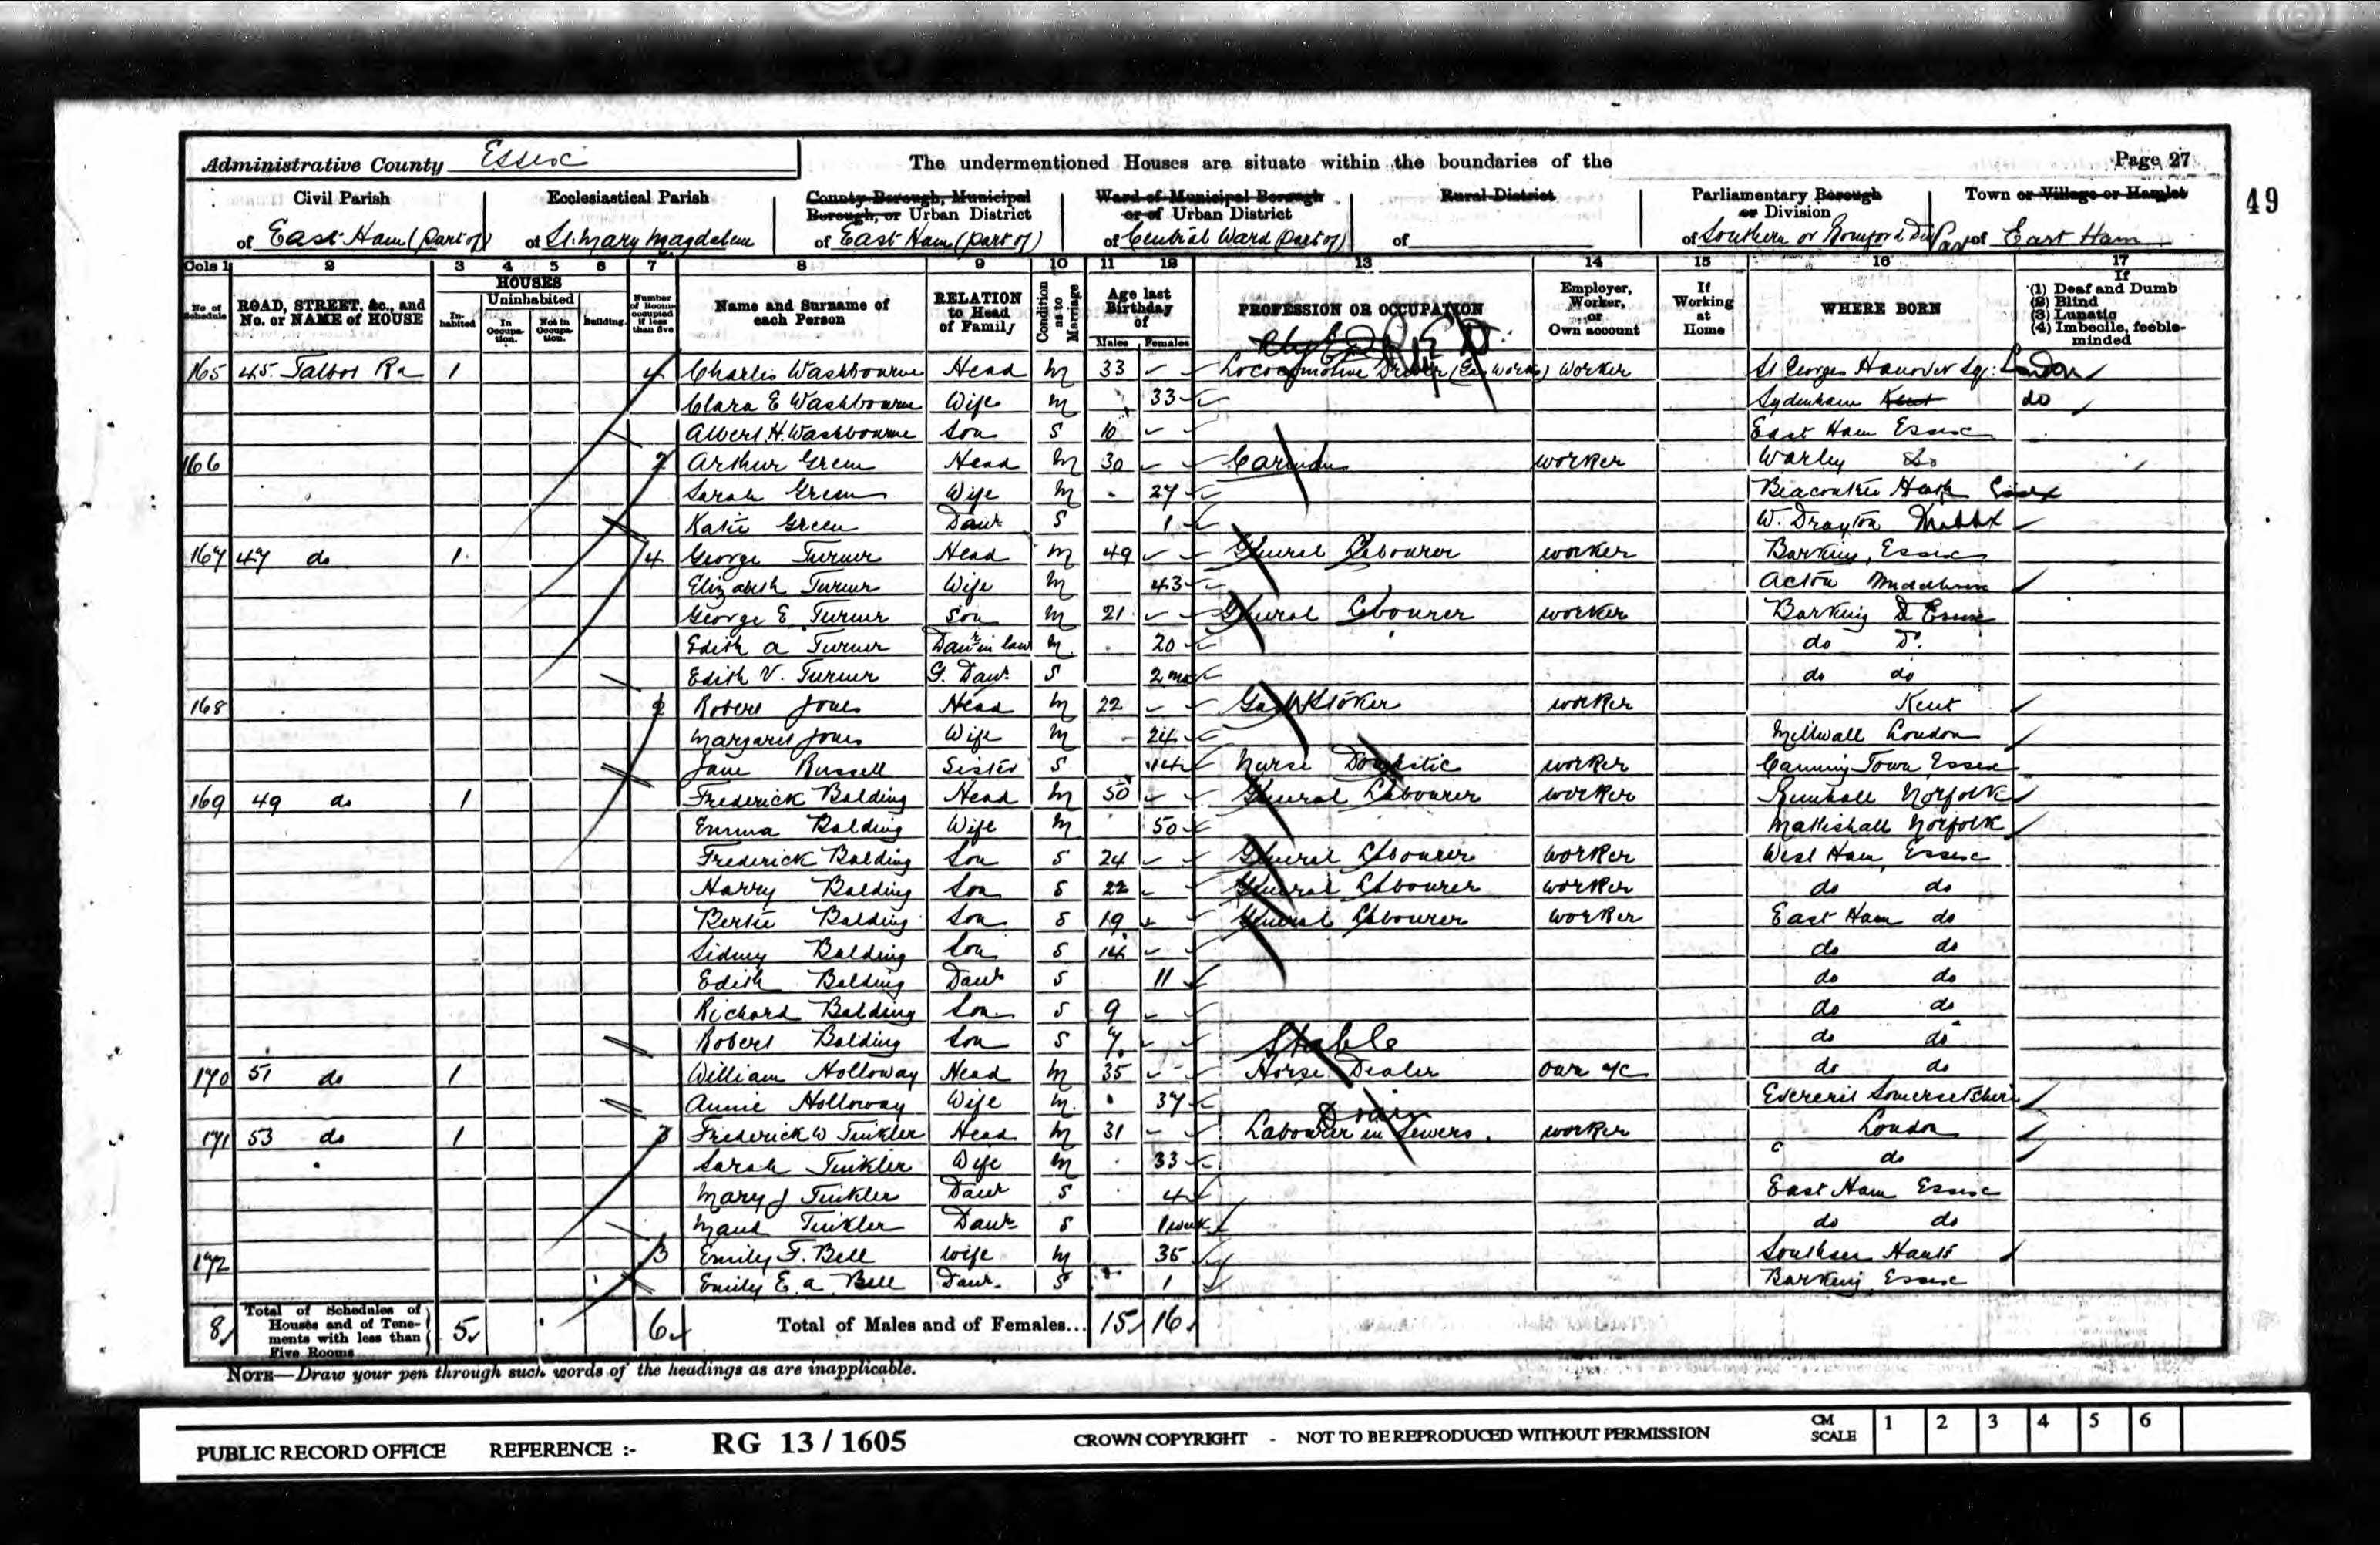 Administrative County Essex The undermentioned Houses are situate within the boundaries of the Page 27
49
Civil Parish Ecclesiastical Parish County Borough, Municipal Borough, or Urban District Ward of Municipal Borough or of Urban District Rural District Parliamentary Borough or Division Town or Village or Hamlet
of East Ham (part of) of St. Mary Magdalene of East Ham (part of) of Central Ward (part of) of of Southern or Romford Div of East Ham
Cols 1 2 3 4 5 6 7 8 9 10 11 12 13 14 15 16 17
No of Schedule ROAD, STREET, &c., and No. or NAME of HOUSE HOUSES Inhabited Uninhabited In Occupation. Not in Occupation. Building. Number of Rooms occupied if less than five Name and Surname of each Person RELATION to Head of Family Condition as to Marriage Age last Birthday of Males Females PROFESSION OR OCCUPATION Employer, Worker, or Own account If Working at Home WHERE BORN If (1) Deaf and Dumb (2) Blind (3) Lunatic (4) Imbecile, feeble-minded
165 45 Talbot Rd 1 4 Charles Washbourne Head M 33 Locomotive Driver (Gas Works) Worker St Georges Hanover Sq: London
Clara E Washbourne Wife M 33 Sydenham Kent do
Albert H. Washbourne Son S 10 East Ham Essex
166 2 Arthur Green Head M 30 Carman worker Warley do
Sarah Green Wife M 27 Beacontree Heath Essex
Katie Green Daur S 1 W. Drayton Middx
167 47 do 1 4 George Turner Head M 49 General Labourer worker Barking, Essex
Elizabeth Turner Wife M 43 Acton Middlesex
George E Turner Son M 21 General Labourer worker Barking Essex
Edith A Turner Daur in law M 20 do Do
Edith V. Turner G. Daur S 2 mo do do
168 2 Robert Jones Head M 22 Gas Stoker worker Kent
Margaret Jones Wife M 24 Millwall London
Jane Russell Sister S 14 Nurse Domestic worker Canning Town, Essex
169 49 do 1 Frederick Balding Head M 50 General Labourer worker Norfolk
Emma Balding Wife M 50 Mattishall Norfolk
Frederick Balding Son S 24 General Labourer worker West Ham, Essex
Harry Balding Son S 22 General Labourer worker do do
Bertie Balding Son S 19 General Labourer worker East Ham do
Sidney Balding Son S 14 do do
Edith Balding Daur S 11 do do
Richard Balding Son S 9 do do
Robert Balding Son S 7 do do
Stable
170 51 do 1 William Holloway Head M 35 Horse Dealer Own a/c do do
Annie Holloway Wife M 37 Somersetshire
Drain
171 53 do 1 3 Frederick W Tinkler Head M 31 Labourer in Sewers. worker London
Sarah Tinkler Wife M 33 do
Mary J Tinkler Daur S 4 East Ham Essex
Maud Tinkler Daur S 1 week do do
172 3 Emily F. Bell Wife M 35 Southsea Hants
Emily E. A. Bell Daur S 1 Barking, Essex
8 Total of Schedules of Houses and of Tenements with less than Five Rooms 5 6 Total of Males and of Females... 15 16
NOTE—Draw your pen through such words of the headings as are inapplicable.
PUBLIC RECORD OFFICE REFERENCE :- RG 13 / 1605 CROWN COPYRIGHT - NOT TO BE REPRODUCED WITHOUT PERMISSION CM SCALE 1 2 3 4 5 6